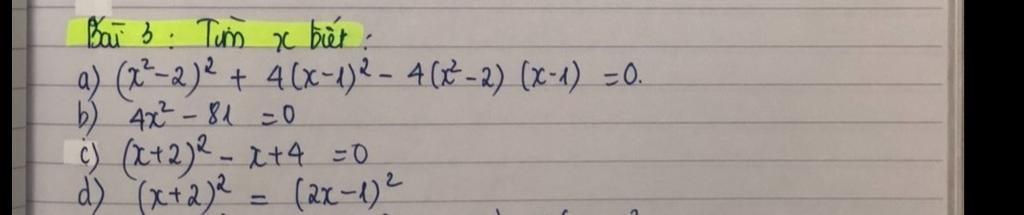 Bài 3 : Tìm x biết :
a) (x²-2)² + 4(x-1)² - 4(x²-2) (x-1) =0.
b) 4x² - 81 =0
c) (x+2)² - x+4 =0
d) (x+2)² = (2x-1)²